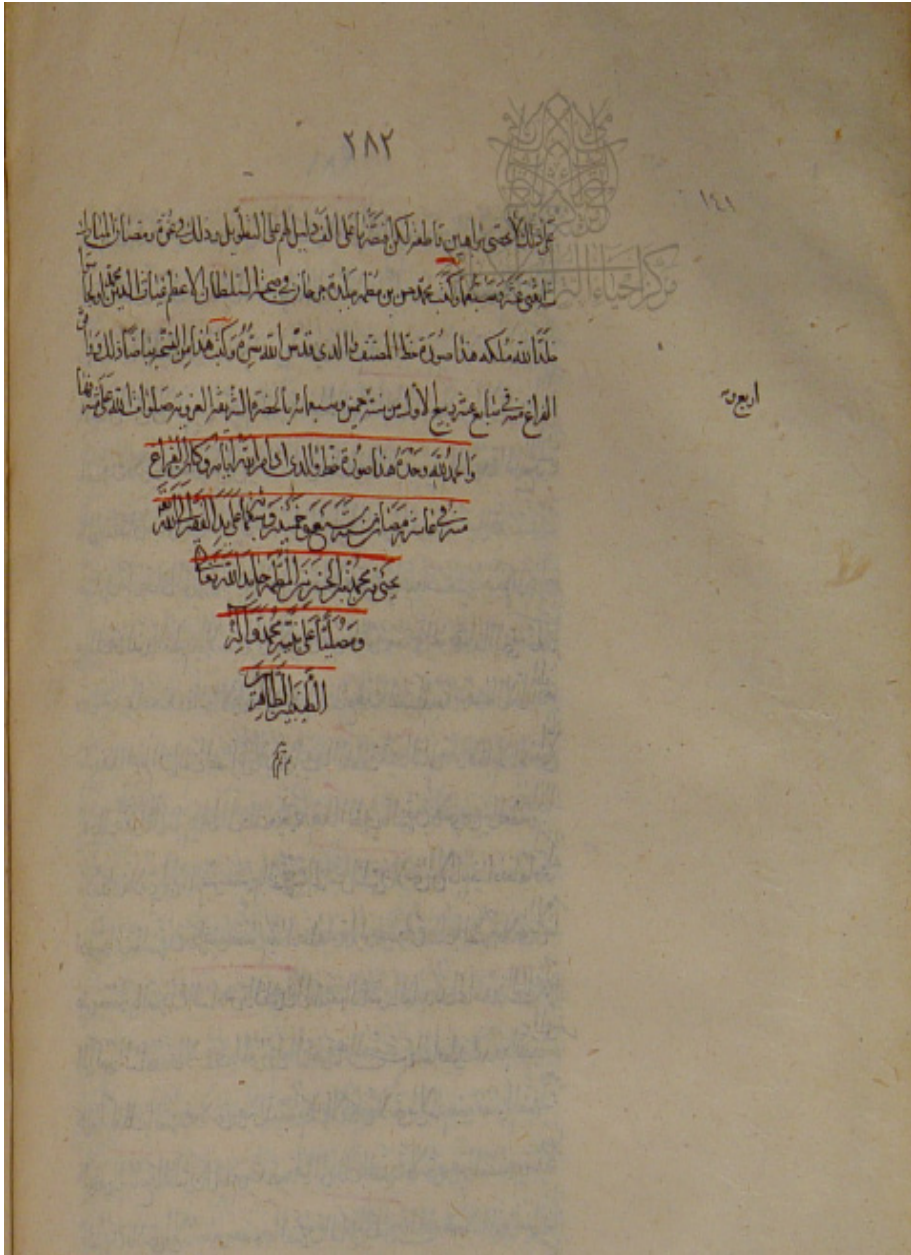 ٢٨٢
١٤١
من ذلك لا تحصى براهين قاطعة لكن اقتصرنا على الف دليل لهم على التطويل وذلك في غرة رمضان المبارك
سنة اثنى عشرة وسبعمائة وكتب حسن بن مطهر ببلدة جرجان في صحبة السلطان الاعظم غياث الدين محمد اولجايتو
خلد الله ملكه هذا صورة خط المصنف والدي قدس الله سره وكتب هذا من النسخة بياضا وذلك ووافق
الفراغ منه في سابع عشر ربيع الاول من سنة خمس وسبعمائة بالحضرة الشريفة الغروية صلوات الله على مشرفها
اربع وة
والحمد لله وحده هذا صورة خط والدي ادام الله ايامه وكان الفراغ
منه في رمضان سنة سبع وخمسين وسبعمائة على يد الفقير الى الله تعالى
يحيى بن محمد بن الحسن بن المطهر حامدا لله تعالى
ومصليا على نبيه محمد وآله
الطيبين الطاهرين